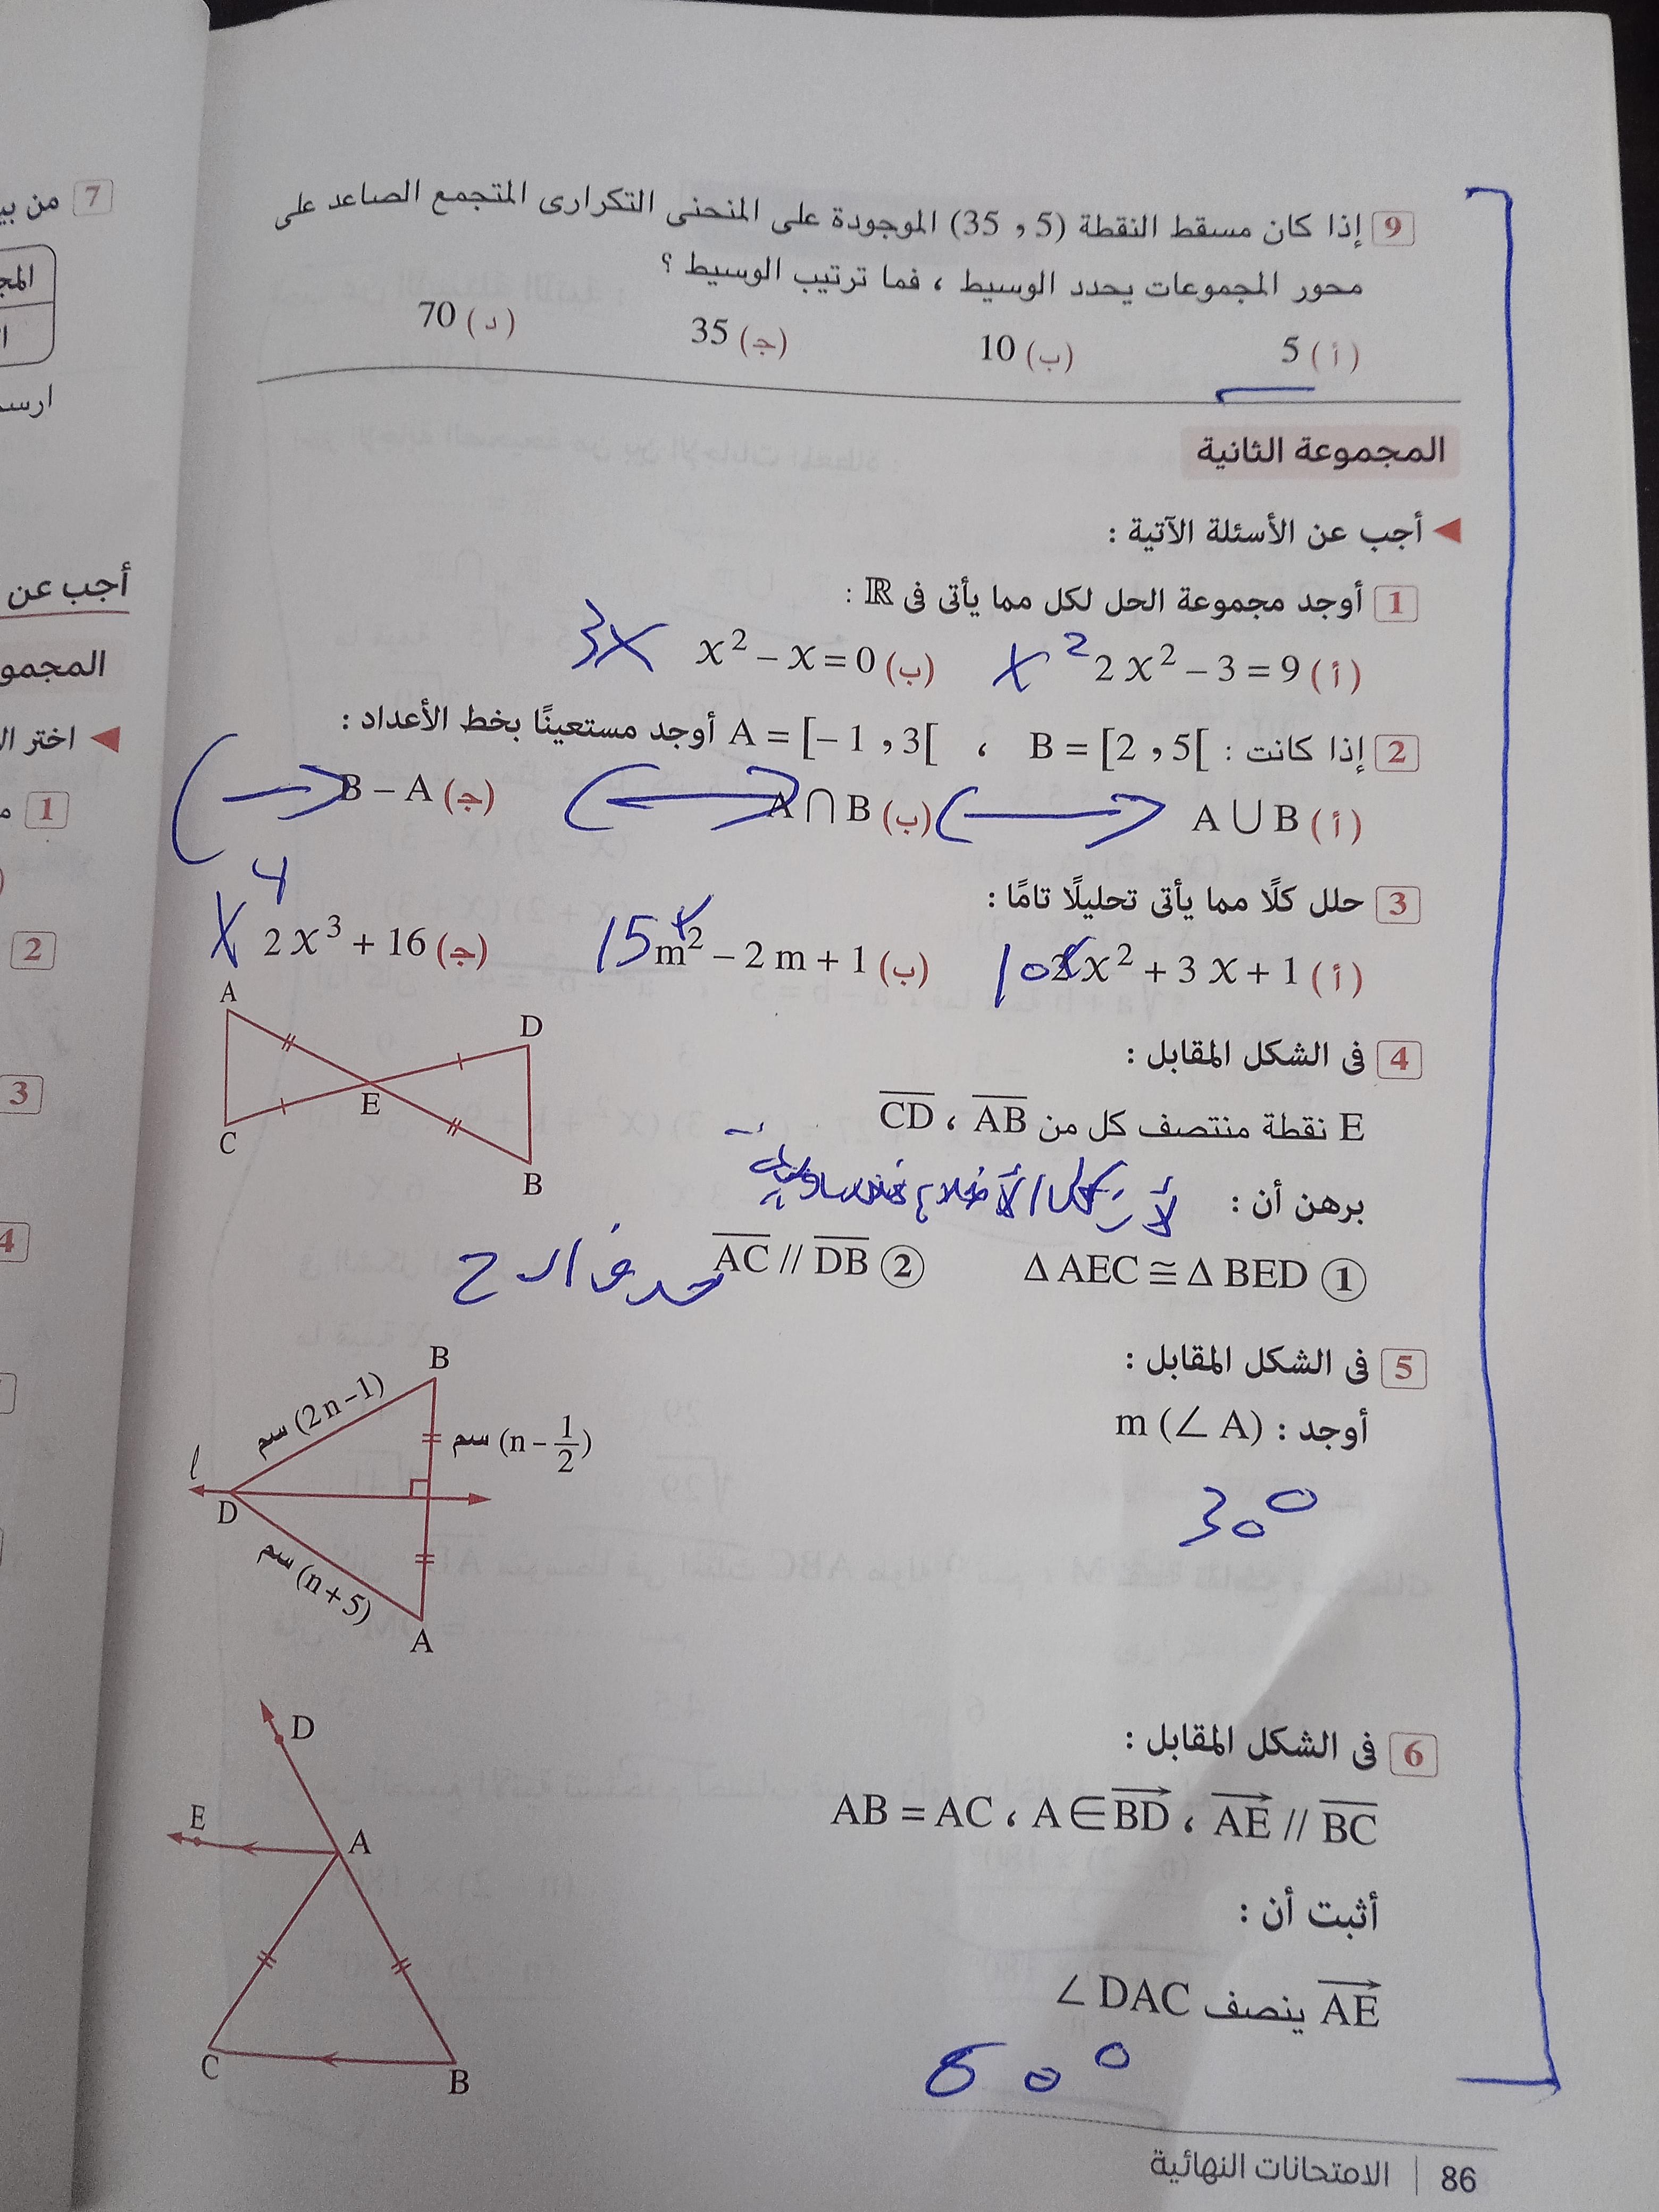 9 إذا كان مسقط النقطة (5 ، 35) الموجودة على المنحنى التكرارى المتجمع الصاعد على
محور المجموعات يحدد الوسيط ، فما ترتيب الوسيط ؟
(أ) 5 (ب) 10 (ج) 35 (د) 70
المجموعة الثانية
أجب عن الأسئلة الآتية :
1 أوجد مجموعة الحل لكل مما يأتى فى ℝ :
(أ) 2x² – 3 = 9 x² (ب) x² – x = 0 3x
2 إذا كانت : B = [2 , 5[ ، A = [– 1 , 3[ أوجد مستعينًا بخط الأعداد :
(أ) A ∪ B (ب) A ∩ B (ج) B – A
3 حلل كلًا مما يأتى تحليلًا تامًا :
(أ) 2x² + 3x + 1 (ب) m² – 2m + 1 (ج) 2x³ + 16
4 فى الشكل المقابل :
E نقطة منتصف كل من AB ، CD
برهن أن :
① Δ AEC ≅ Δ BED ② AC // DB
A
D
E
C
B
5 فى الشكل المقابل :
أوجد : m (∠ A)
30°
B
(2n–1) سم
(n – 1/2) سم
ℓ
D
(n+5) سم
A
6 فى الشكل المقابل :
AB = AC ، A ∈ BD ، AE // BC
أثبت أن :
AE ينصف ∠ DAC
D
E
A
C
B
86 | الامتحانات النهائية
7 من بي
المج
ارس
أجب عن
المجمو
اختر ال
1
2
3
4